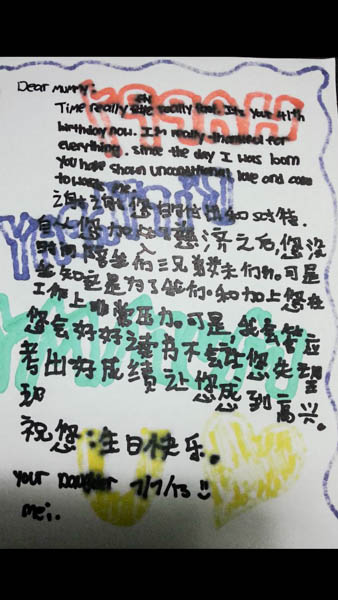 Dear Mummy:
Time really really fast. It's your 41th
birthday now. I'm really thankful for
everything, since the day I was born
you have shown unconditional love and care
towards me.
您 付出和
自 您加入慈济之后,您没
时间陪 们三兄 们.可是
知 是为了我们.和加上您在
工作上非常压力.可是,我会答应
您会好好读书不会让您失望
考出好成绩让您感到高兴.
祝您:生日快乐.
your Daughter 7/7/13 !!
mei..